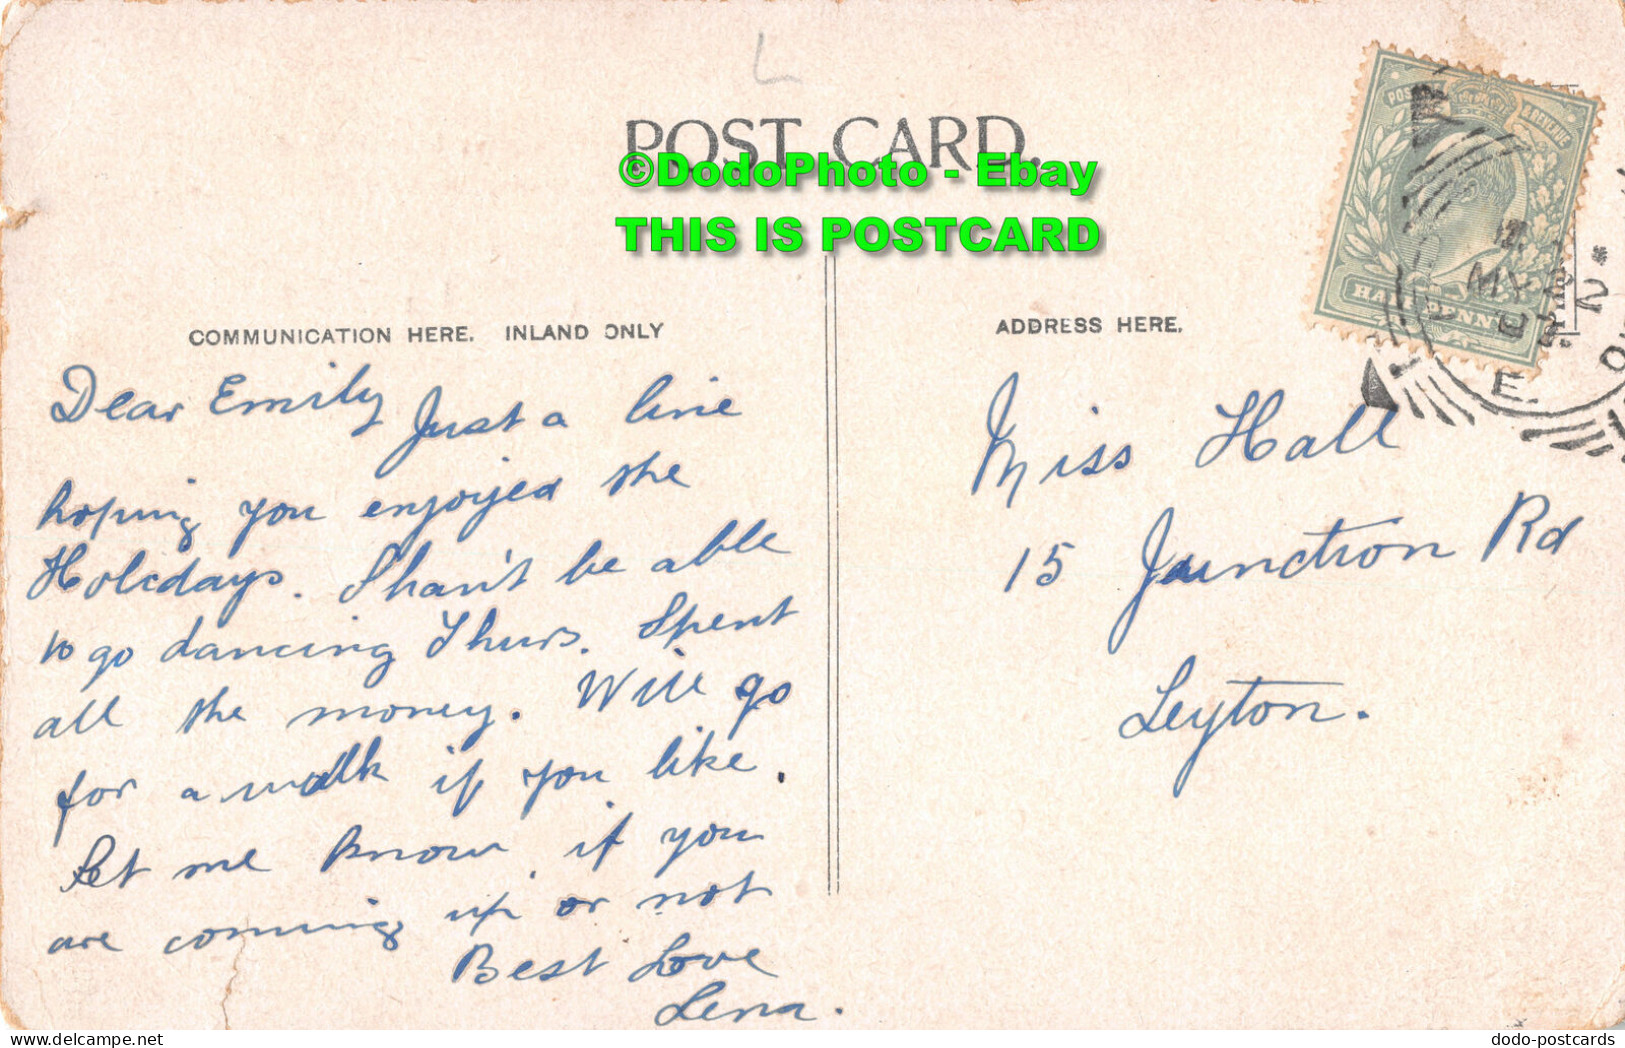 L
POST CARD.
©DodoPhoto - Ebay
THIS IS POSTCARD
COMMUNICATION HERE. INLAND ONLY
Dear Emily Just a line
hoping you enjoyed the
Holidays. Shan't be able
to go dancing Thurs. Spent
all the money. Will go
for a walk if you like.
Let me know if you
are coming up or not
Best Love
Lena.
ADDRESS HERE.
Miss Hall
15 Junction Rd
Leyton.
POSTAGE & REVENUE
HALFPENNY
MY
E.
delcampe.net
dodo-postcards